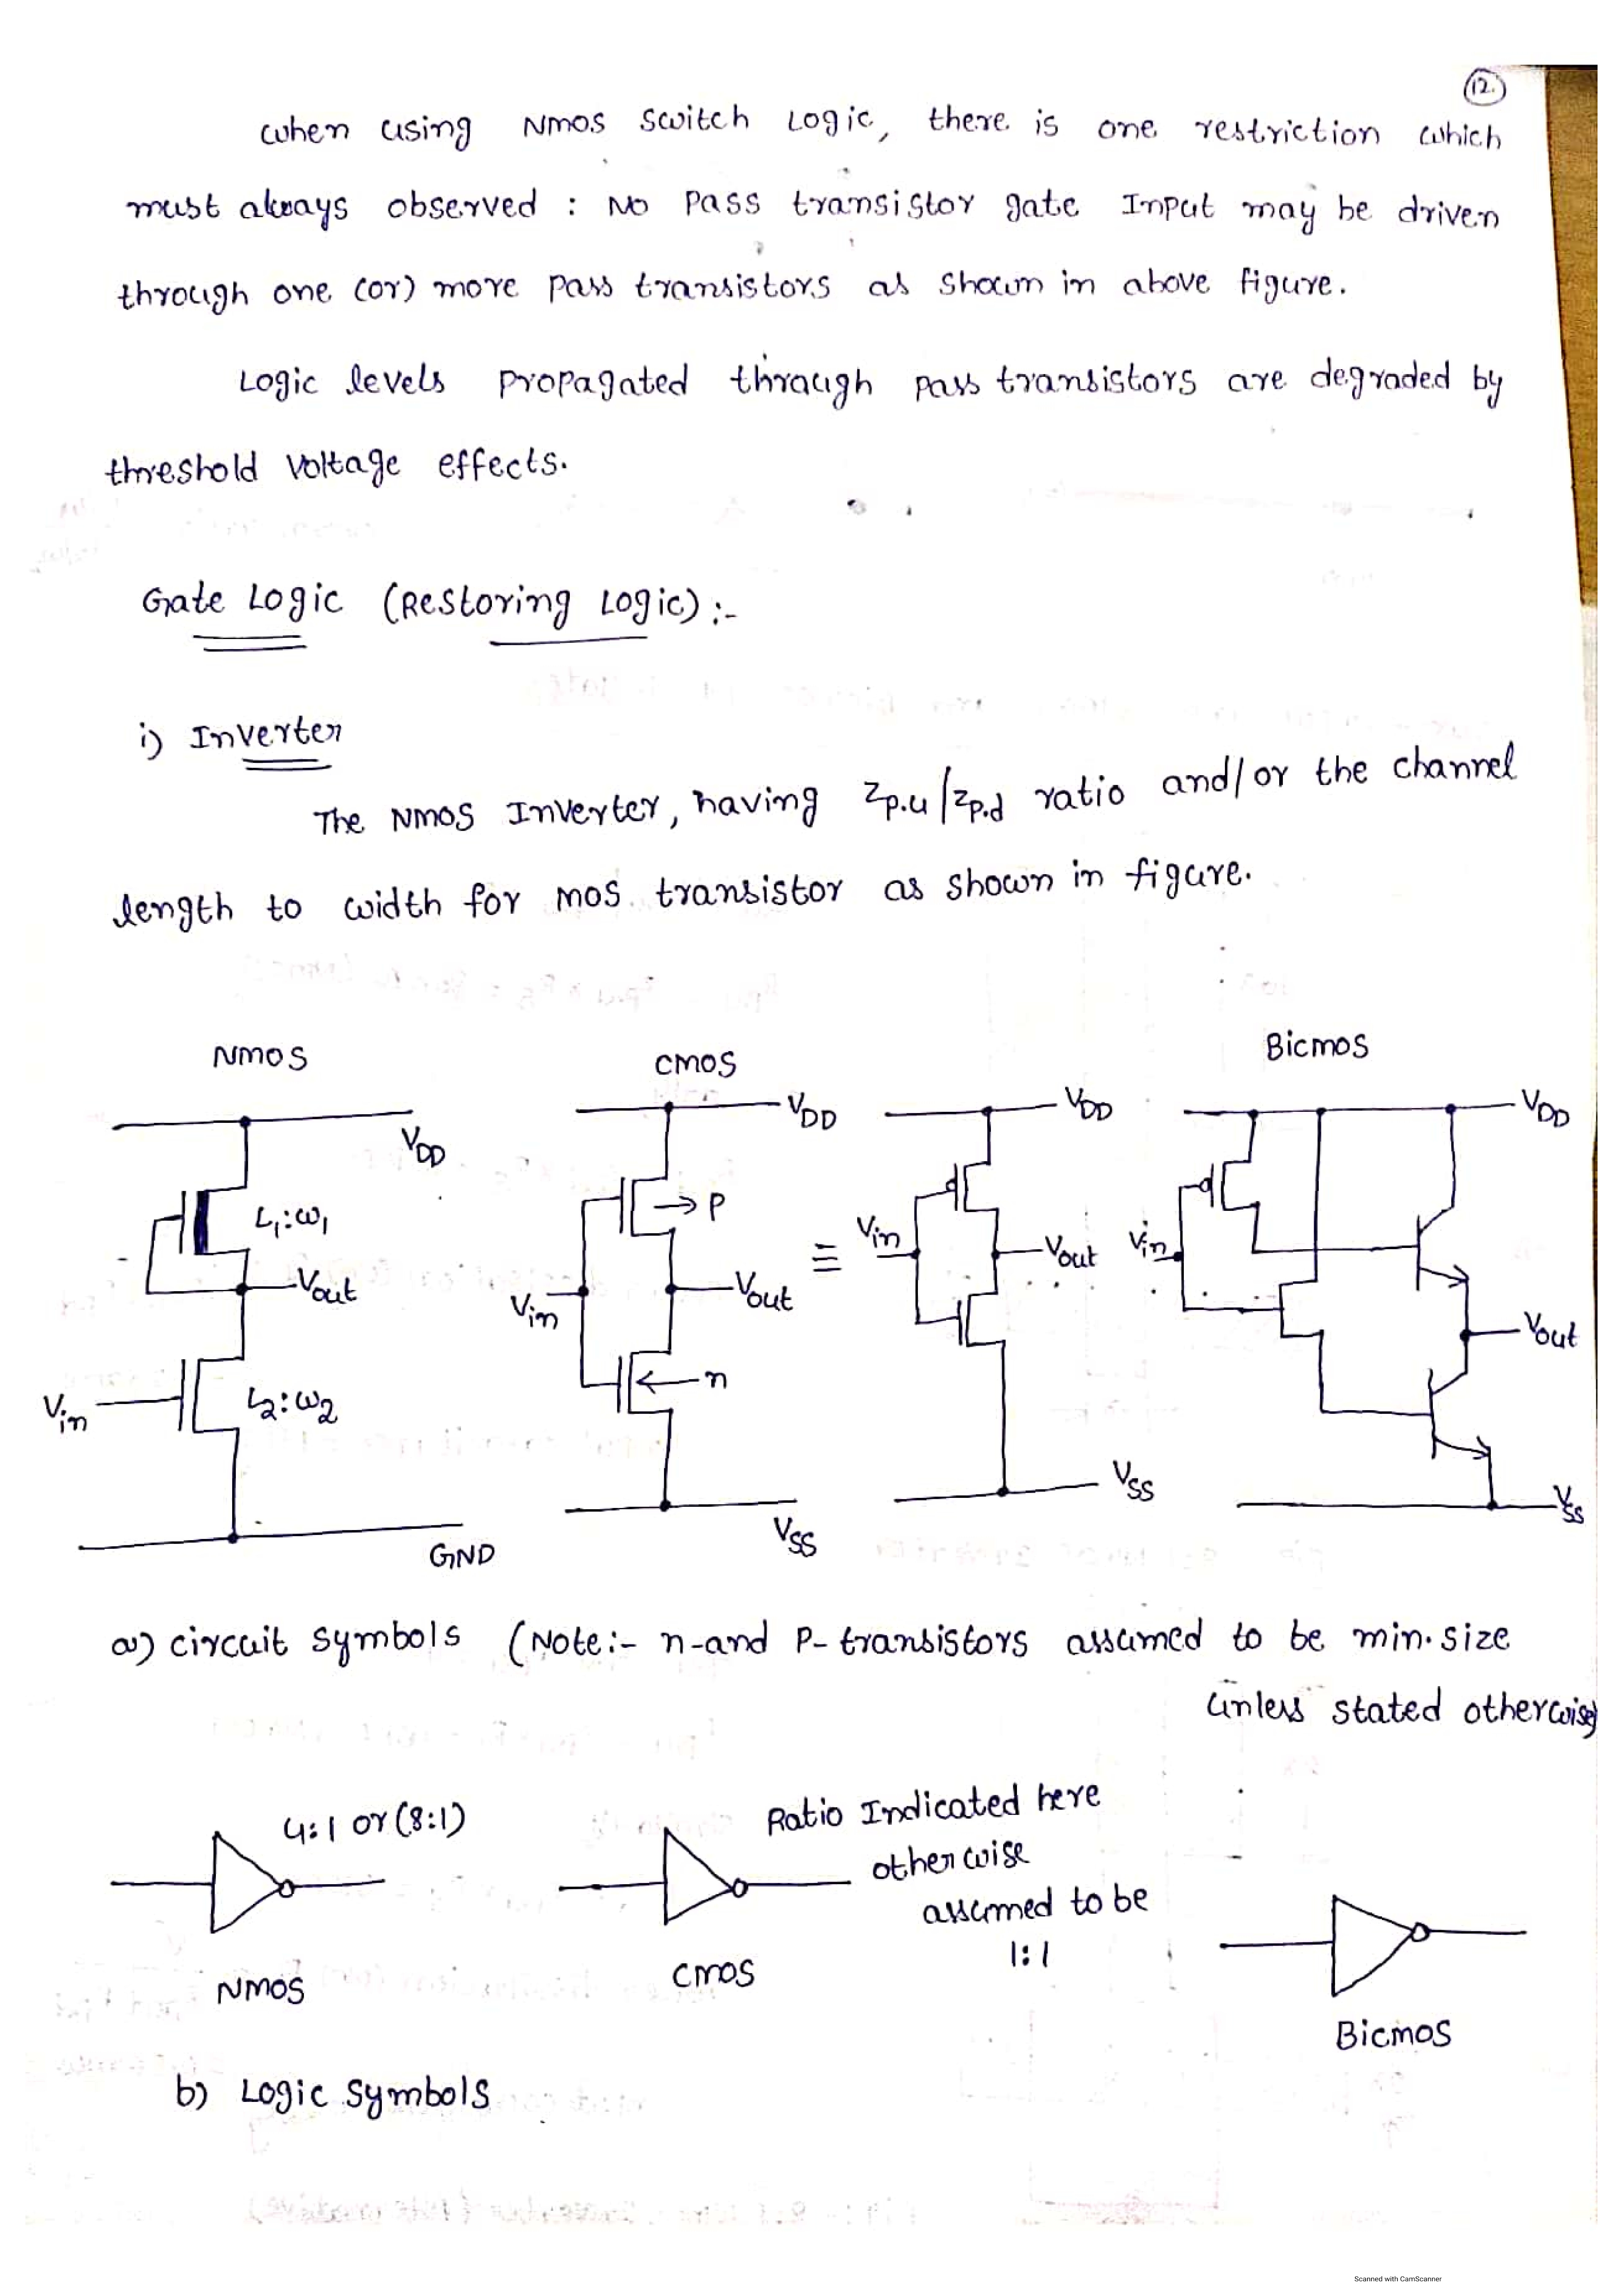 12.
when using NMOS switch Logic, there is one restriction which
must always observed : No Pass transistor gate Input may be driven
through one (or) more Pass transistors as shown in above figure.
Logic levels propagated through pass transistors are degraded by
threshold voltage effects.
Gate Logic (Restoring Logic) :-
i) Inverter
The NMOS Inverter, having Zp.u/Zp.d ratio and/or the channel
length to width for mos transistor as shown in figure.
NMOS CMOS BiCMOS
VDD VDD VDD VDD
L1:ω1 P
Vin Vout Vin Vout Vin Vout Vin Vout
≡
L2:ω2 n
GND VSS VSS VSS
a) circuit symbols (Note:- n-and P-transistors assumed to be min.size
unless stated otherwise)
4:1 or (8:1) Ratio Indicated here
otherwise
assumed to be
1:1
NMOS CMOS BiCMOS
b) Logic symbols
Scanned with CamScanner